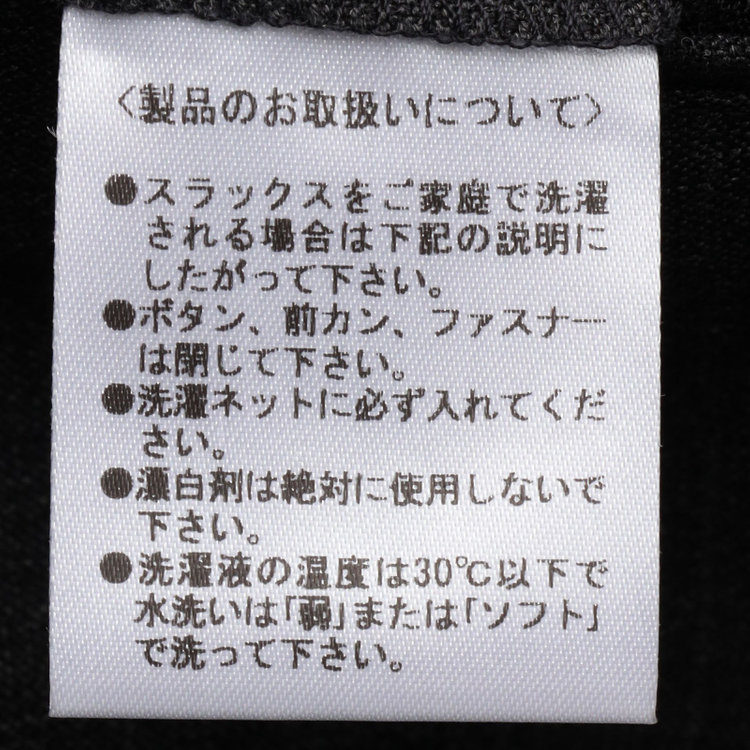 〈製品のお取扱いについて〉
●スラックスをご家庭で洗濯
される場合は下記の説明に
したがって下さい。
●ボタン、前カン、ファスナー
は閉じて下さい。
●洗濯ネットに必ず入れてくだ
さい。
●漂白剤は絶対に使用しないで
下さい。
●洗濯液の温度は30℃以下で
水洗いは「弱」または「ソフト」
で洗って下さい。